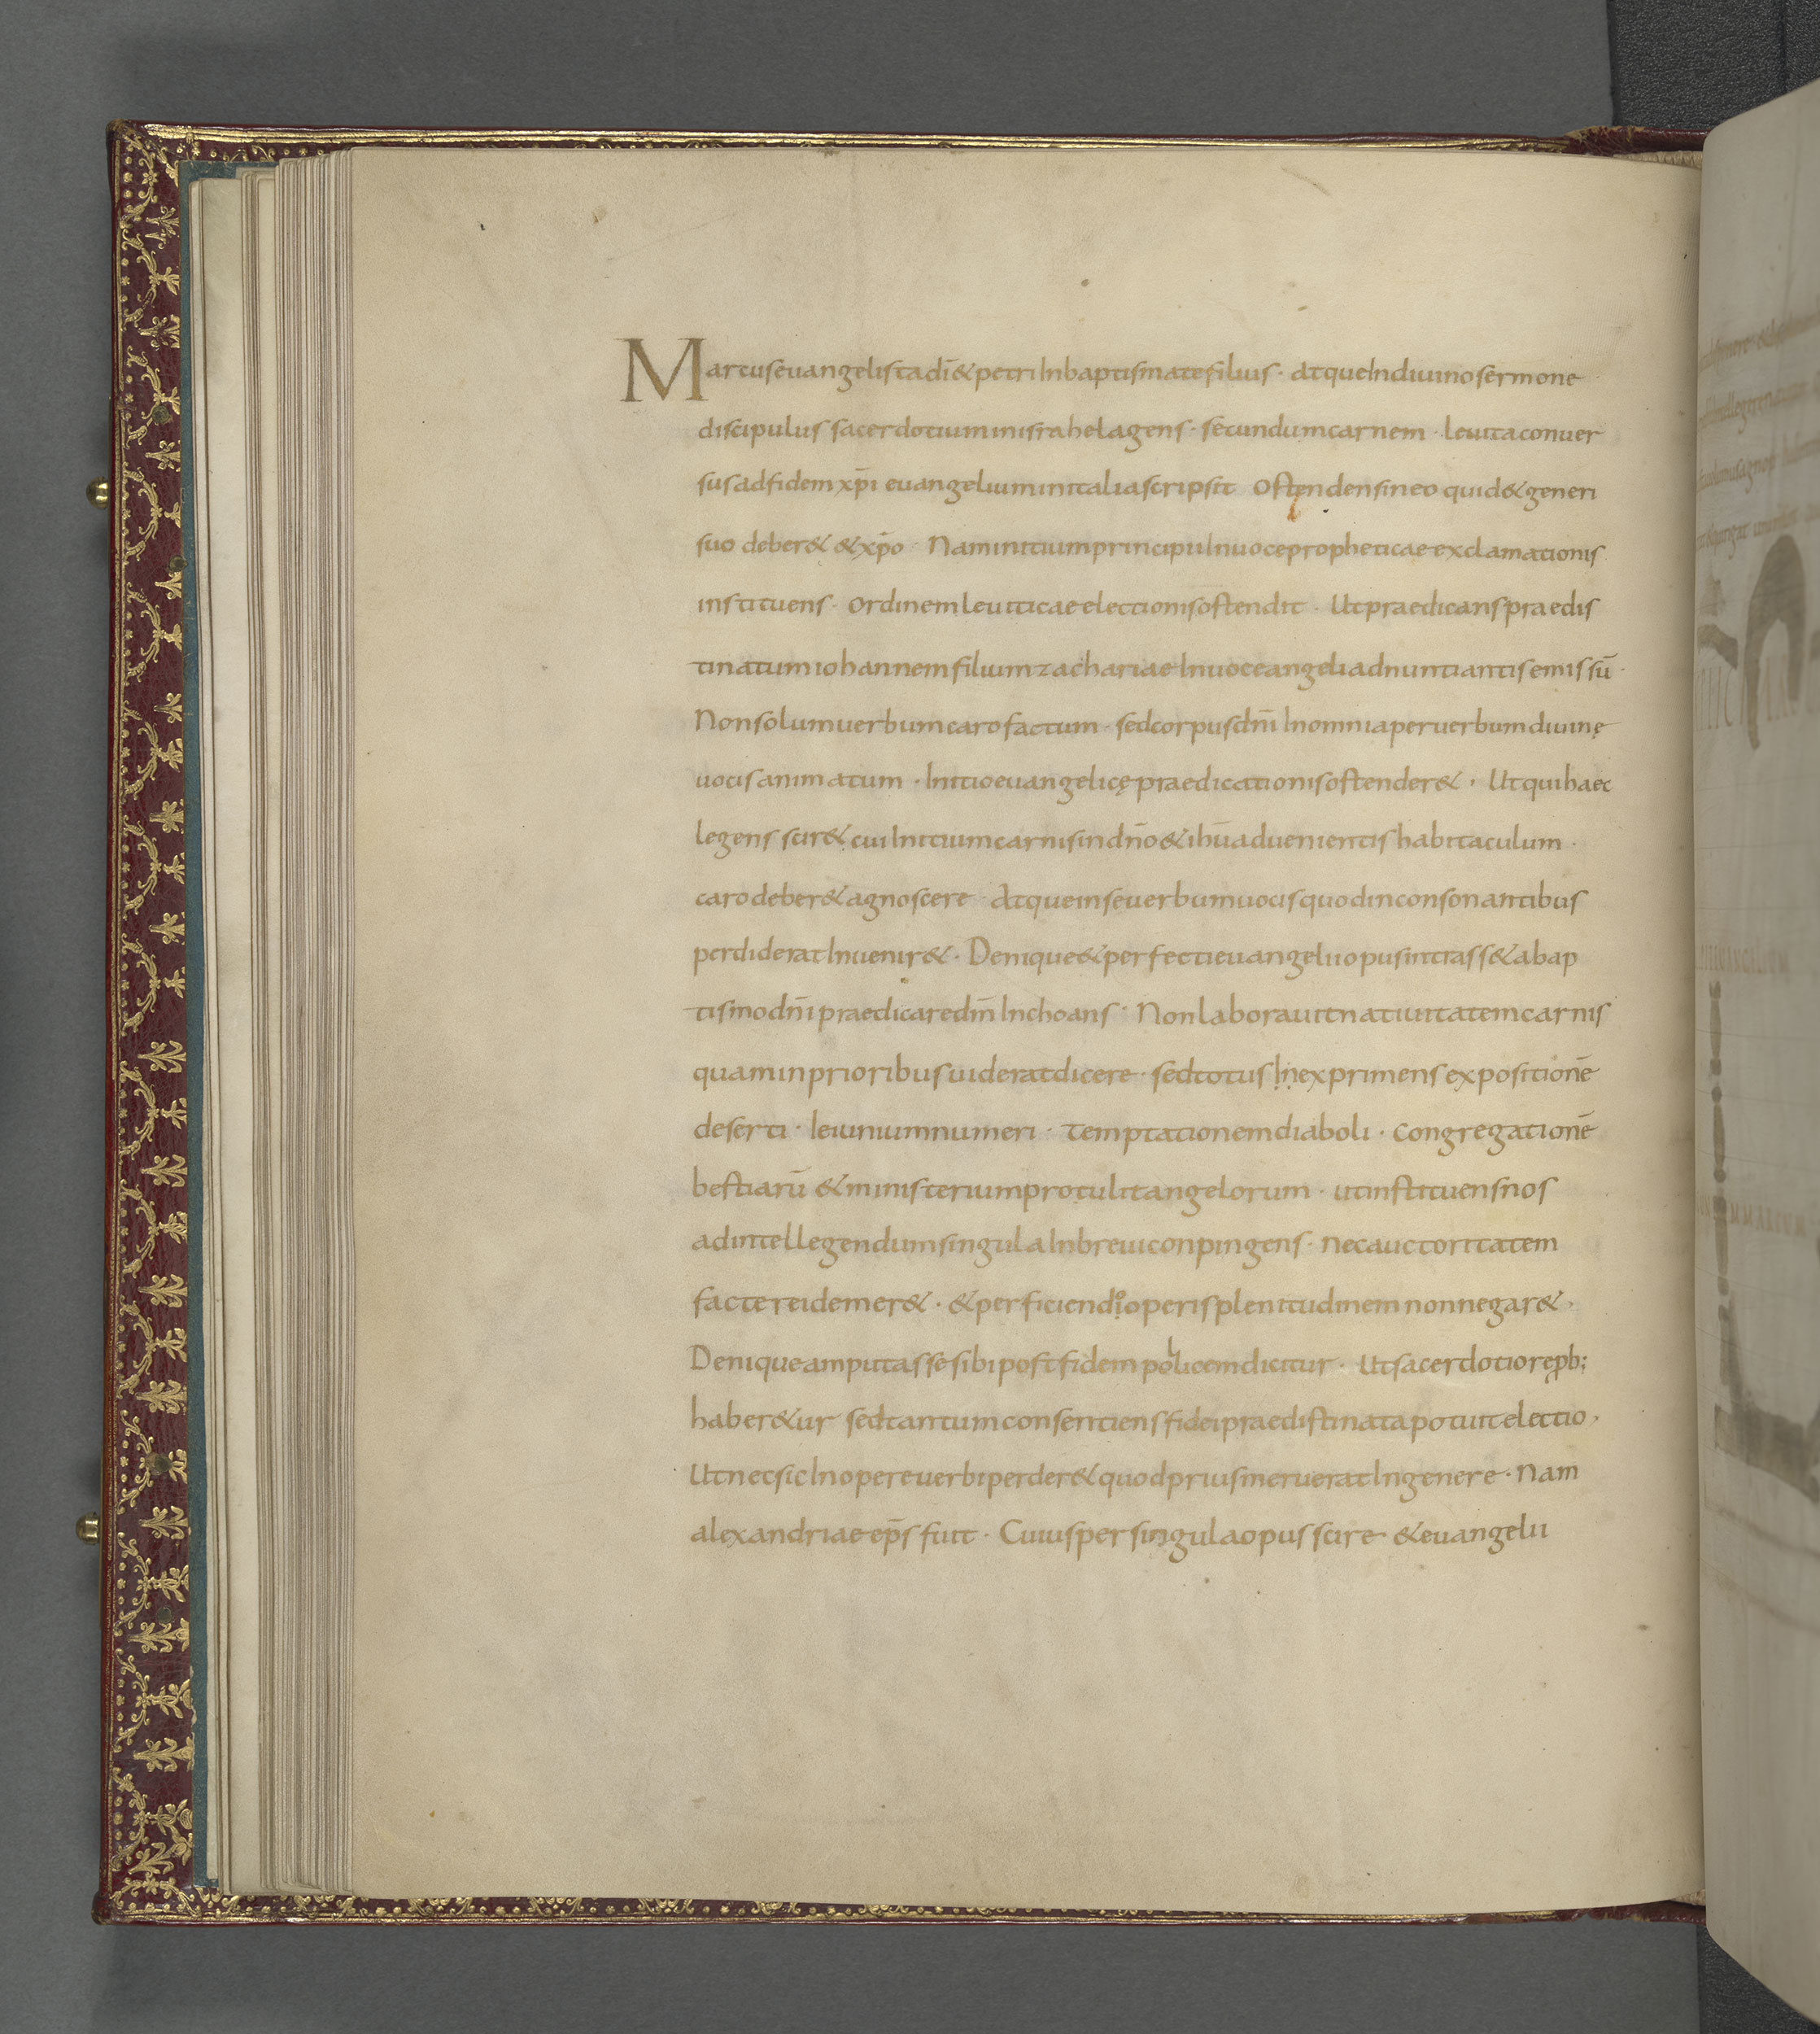 Marcus euangelista di̅ & petri In baptismate filius · atque In diuino sermone
discipulus sacerdotium in israhel agens · secundum carnem · leuita conuer
sus ad fidem xp̅i euangelium in italia scripsit ostendens in eo quid & generi
suo deber& & xp̅o · Nam initium principii In uoce propheticae exclamationis
instituens · ordinem leuiticae electionis ostendit · Ut praedicans praedis
tinatum iohannem filium zachariae In uoce angeli adnuntiantis emissū ·
Non solum uerbum caro factum · sed corpus dn̅i In omnia per uerbum diuinę
uocis animatum · Initio euangelicę praedicationis ostender& · Ut qui haec
legens scir& cui Initium carnis in dn̅o & ihu̅ aduenientis habitaculum ·
caro deber& agnoscere · Atque in se uerbum uocis quod in consonantibus
perdiderat Inuenir& · Denique & perfecti euangelii opus intrass& a bap
tismo dn̅i praedicare dm̅ Inchoans · Non laborauit natiuitatem carnis
quam in prioribus uiderat dicere · sed totus In exprimens expositionē
deserti · Ieiunium numeri · temptationem diaboli · congregationē
bestiarū & ministerium protulit angelorum · ut instituens nos
ad intellegendum singula In breui conpingens · nec auctoritatem
factere idemer& · & perficiendi operis plenitudinem non negar& ·
Denique amputasse sibi post fidem pollicem dicitur · Ut sacerdotio rep̱b;
haber&ur sed tantum consentiens fidei praedistinata potuit electio ·
Ut nec sic In opere uerbi perder& quod prius meruerat In genere · Nam
alexandriae ep̅s fuit · Cuius per singula opus scire & euangelii